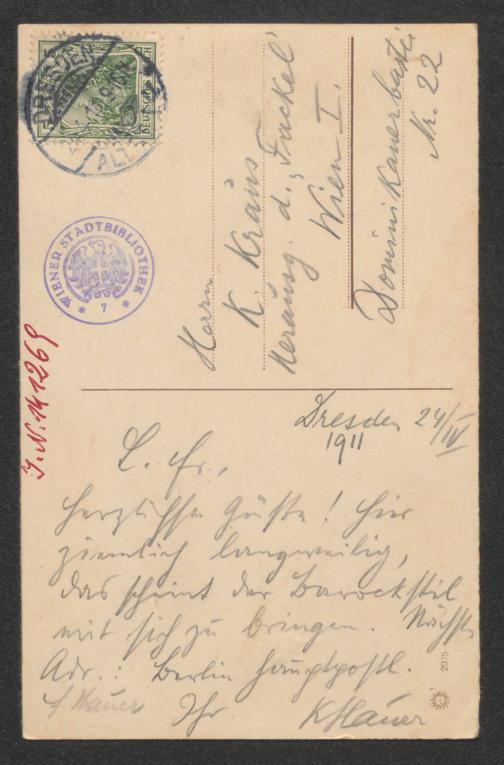 DRESDEN
ALTST.
DEUTSCHES REICH
WIENER STADTBIBLIOTHEK
* 7 *
J.N. 141269
Herrn
K. Kraus
Herausg. d. „Fackel“
Wien I.
Dominikanerbastei
Nr. 22
Dresden 24/IV
1911
L. Fr.,
herzlichste Grüße! Hier
ziemlich langweilig,
das scheint der Barockstil
mit sich zu bringen. Nächste
Adr.: Berlin Hauptpostl.
Ihr KHauer
2075